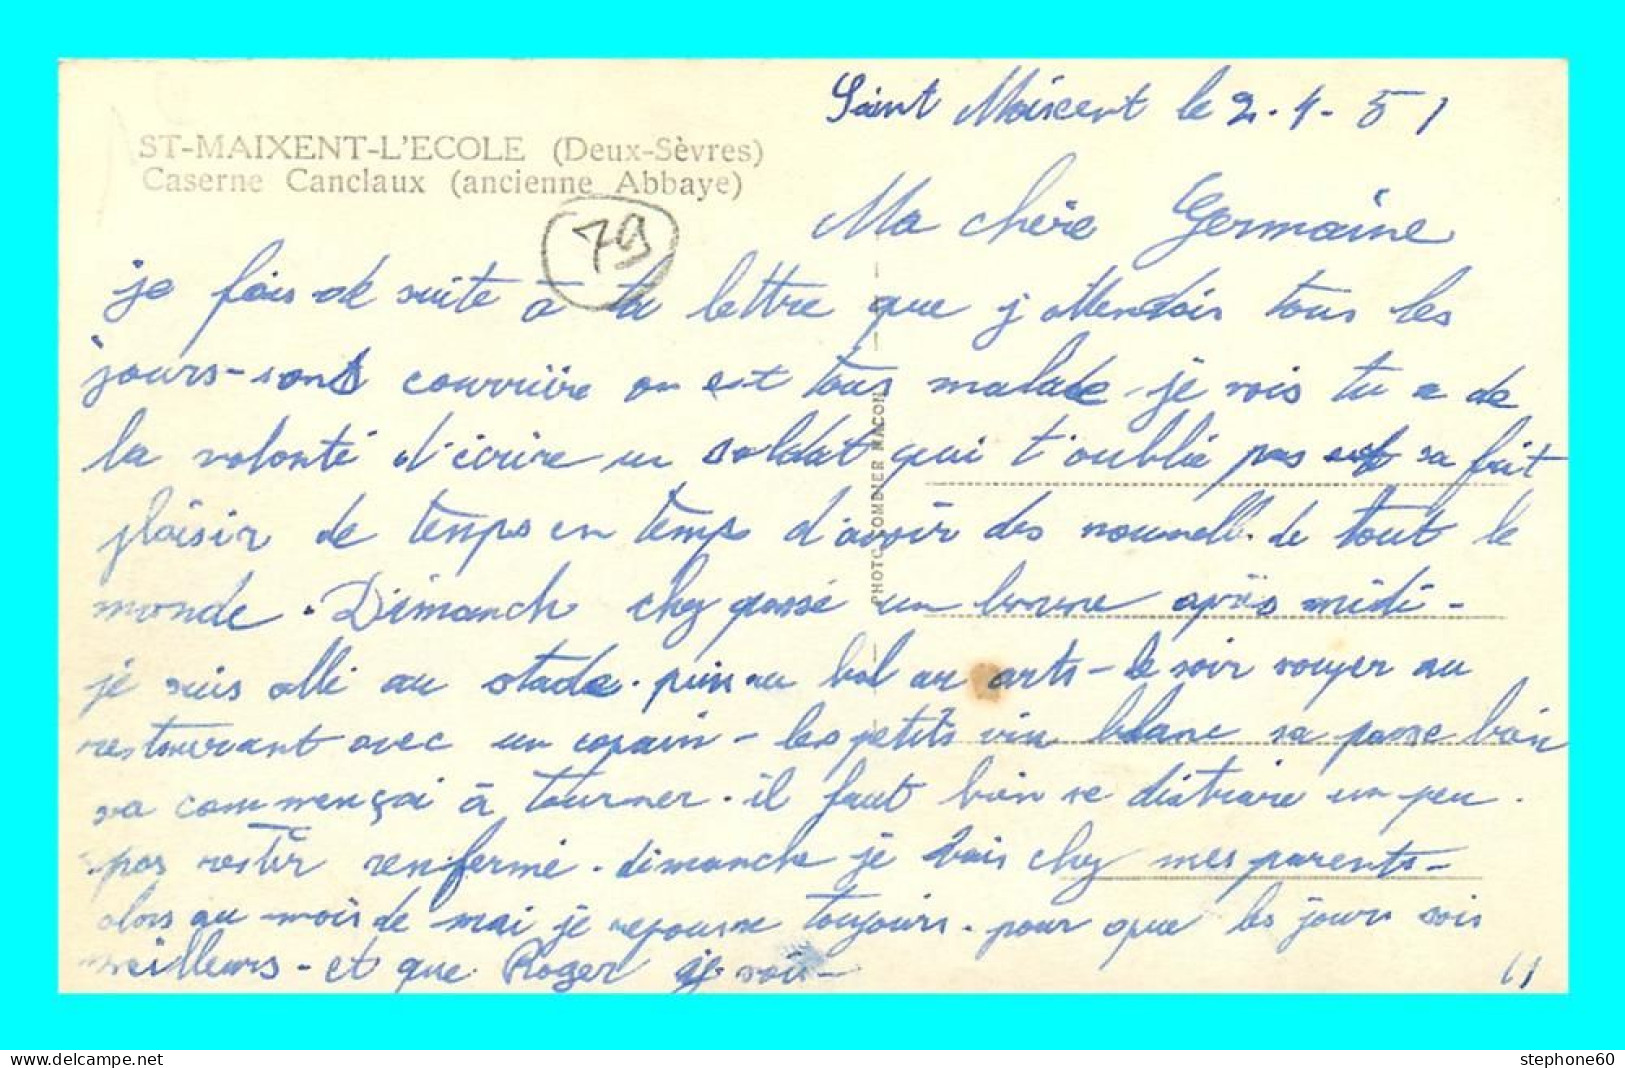 Saint Maixent le 2.4.51
ST-MAIXENT-L'ECOLE (Deux-Sèvres)
Caserne Canclaux (ancienne Abbaye)
79
Ma chère Germaine
je fais de suite à ta lettre que j attendais tous les
jours - sans courrière on est tous malade je vois tu a de
la volonté d'écrire un soldat qui t'oublie pas sa fait
plaisir de temps en temps d'avoir des nouvelle. de tout le
monde. Dimanch chez passé un bonne après midi -
je suis allé au stade. puis au bal au arts - le soir souper au
restaurant avec un copain - les petits vin blanc sa passe bien
sa commençai à tourner. il faut bien se distraire un peu.
pas rester renfermé. dimanche je vais chez mes parents -
alors au mois de mai je repasse toujours. pour que les jours sois
meilleurs - et que Roger soit -
PHOTO COMBIER MACON
61
stephone60